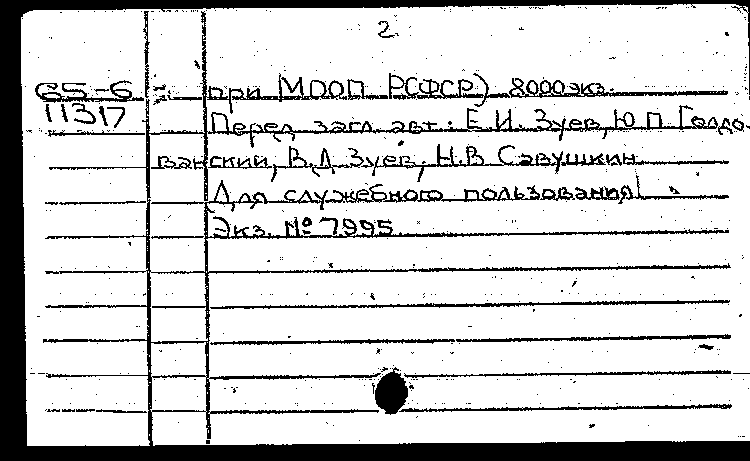 2
65-6
11317
при МООП РСФСР) 8000 экз.
Перед загл. авт.: Е.И. Зуев, Ю.П. Голдо-
ванский, В.Д. Зуев, Н.В. Савушкин
Для служебного пользования
Экз. № 7995